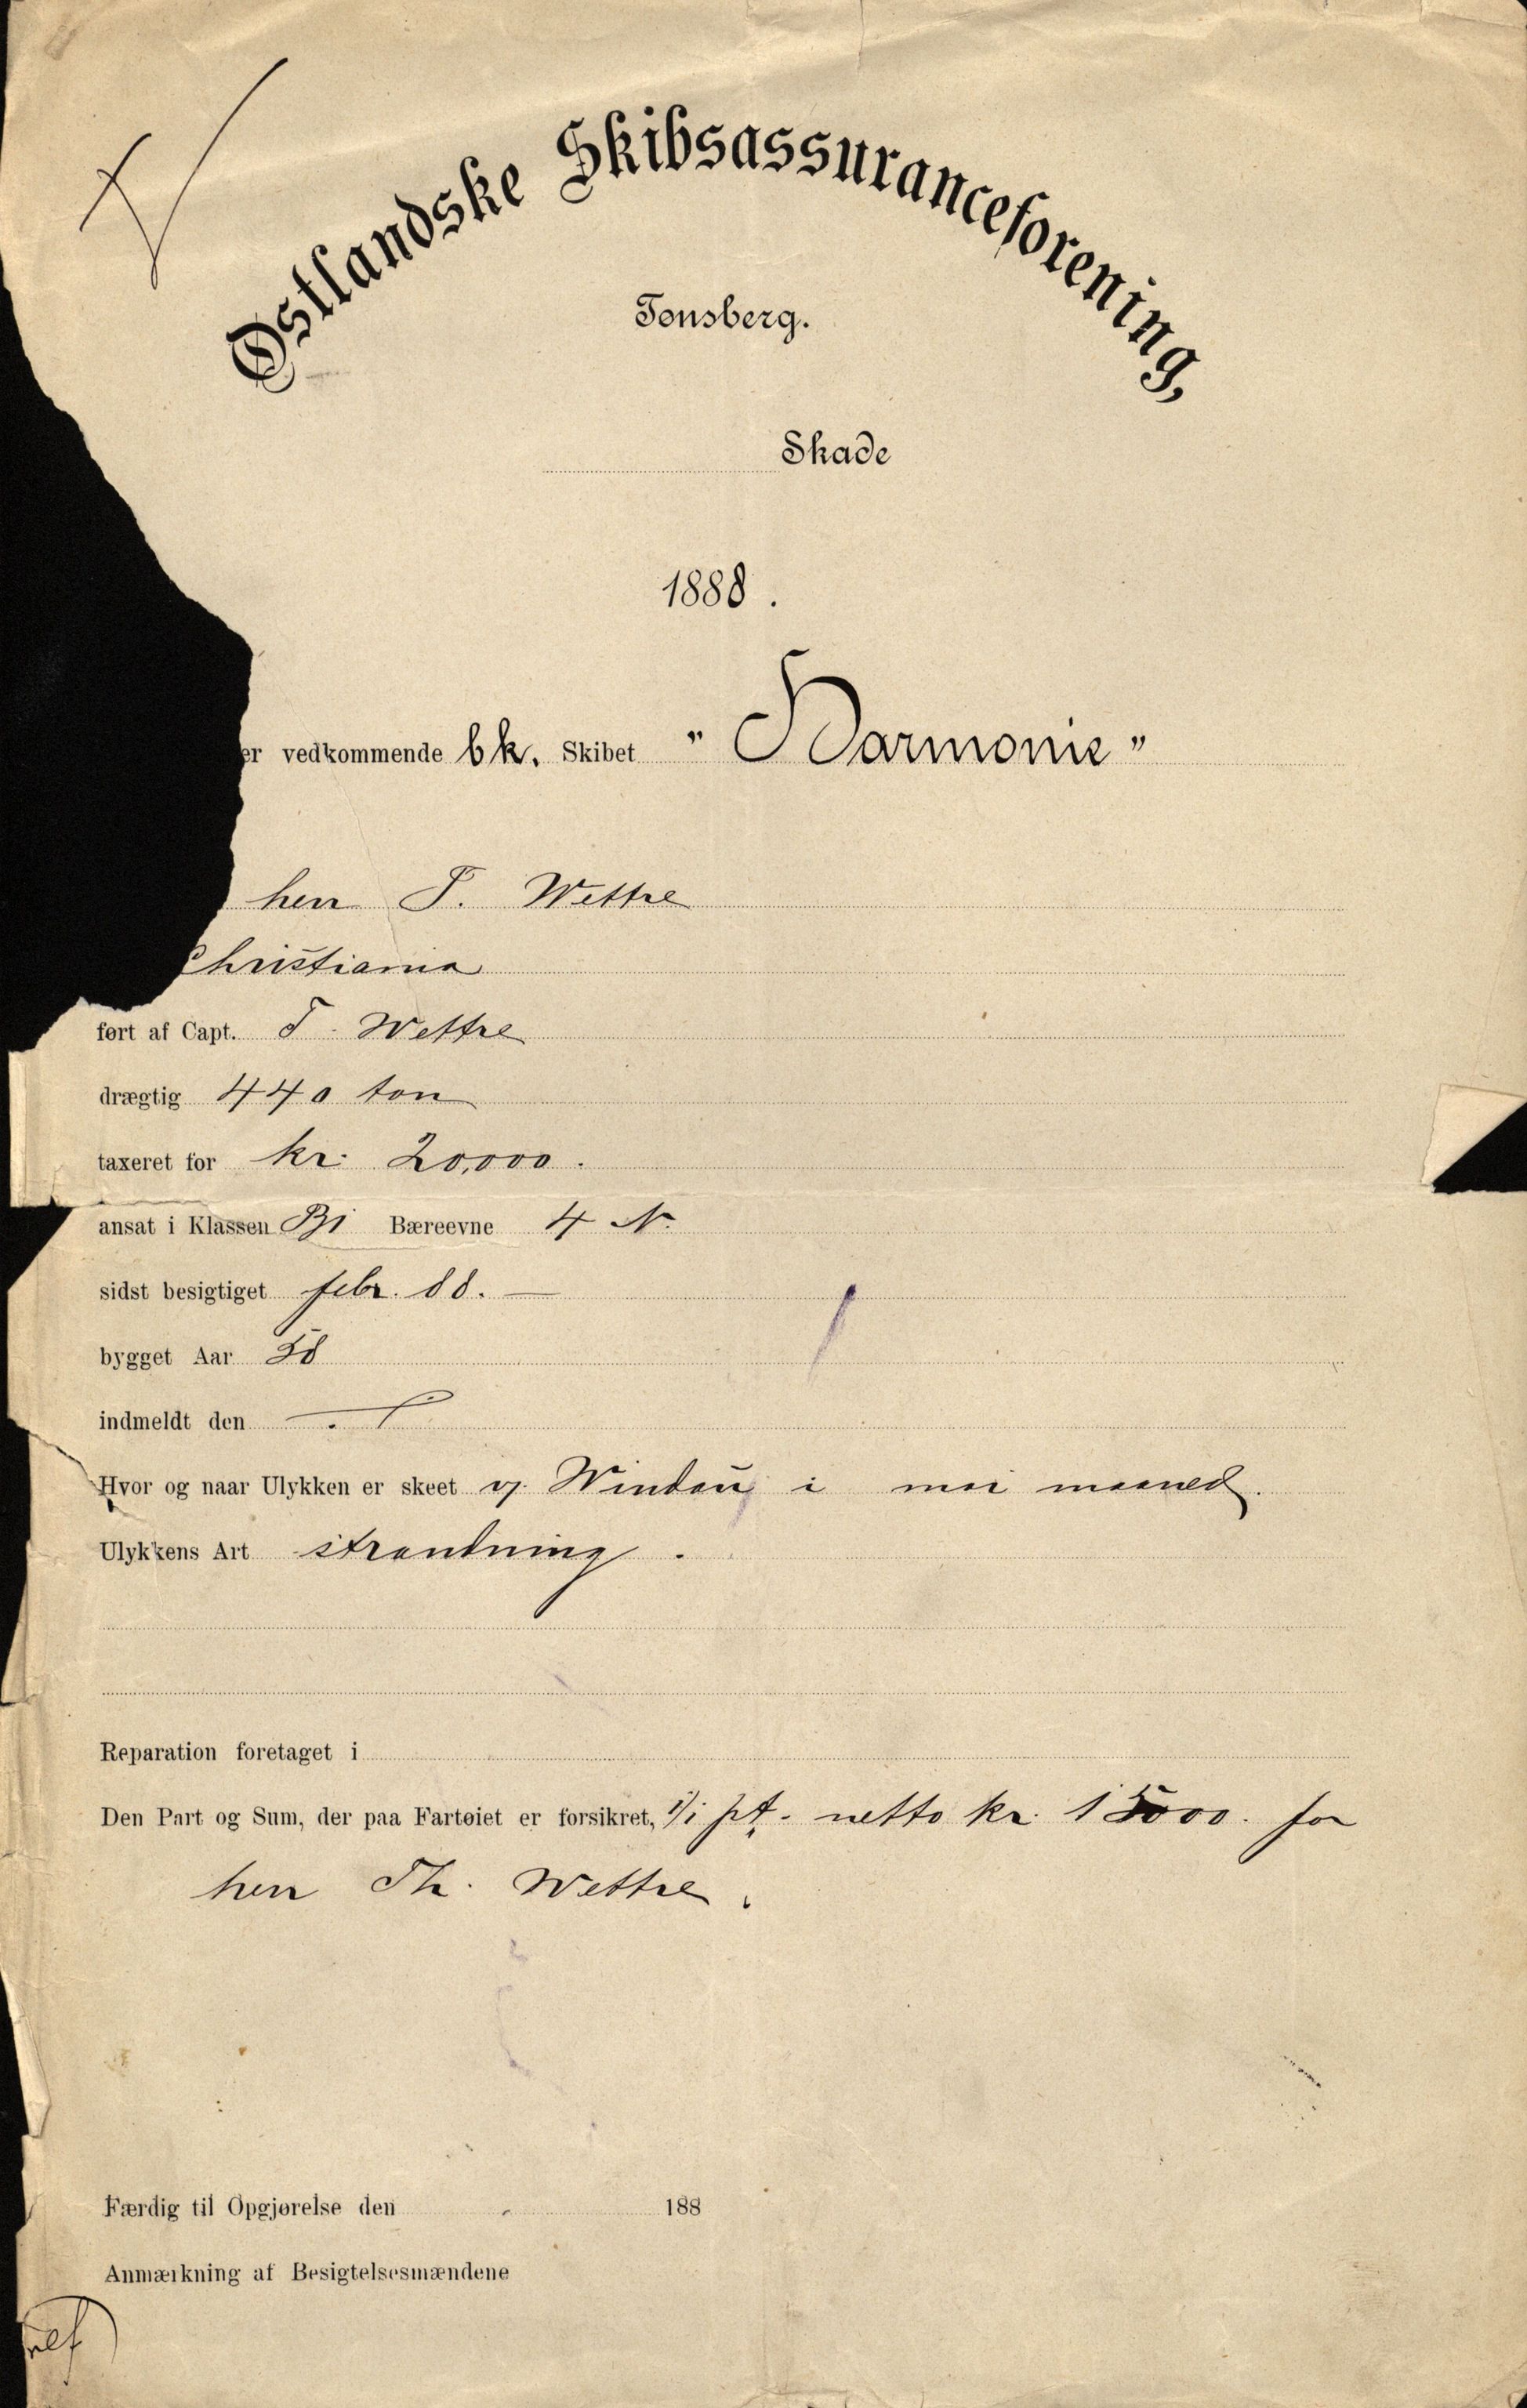 Østlandske Skibsassuranceforening,
Tønsberg.
Skade
1888.
er vedkommende bk. Skibet "Harmonie"
herr T. Wettre
Christiania
ført af Capt. T. Wettre
drægtig 440 ton
taxeret for kr. 20,000.
ansat i Klassen B1 Bæreevne 4 N.
sidst besigtiget febr. 88. —
bygget Aar 58
indmeldt den
Hvor og naar Ulykken er skeet v/ Windau i mai maaned.
Ulykkens Art strandning.
Reparation foretaget i
Den Part og Sum, der paa Fartøiet er forsikret, 1/1 pt. netto kr. 15000. for
herr Th. Wettre.
Færdig til Opgjørelse den 188
Anmærkning af Besigtelsesmændene